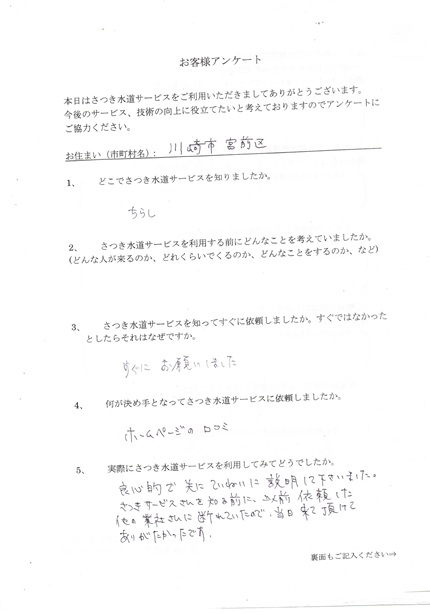 お客様アンケート
本日はさつき水道サービスをご利用いただきましてありがとうございます。
今後のサービス、技術の向上に役立てたいと考えておりますのでアンケートに
ご協力ください。
お住まい（市町村名）： 川崎市 宮前区
1、 どこでさつき水道サービスを知りましたか。
ちらし
2、 さつき水道サービスを利用する前にどんなことを考えていましたか。
(どんな人が来るのか、どれくらいでくるのか、どんなことをするのか、など)
3、 さつき水道サービスを知ってすぐに依頼しましたか。すぐではなかった
としたらそれはなぜですか。
すぐに お願いしました
4、 何が決め手となってさつき水道サービスに依頼しましたか。
ホームページの 口コミ
5、 実際にさつき水道サービスを利用してみてどうでしたか。
良心的で 先に ていねいに 説明して下さいました。
さつきサービスさんを知る前に、以前 依頼した
他の業社さんに 断られていたので、当日来て頂けて
ありがたかったです。
裏面もご記入ください⇒